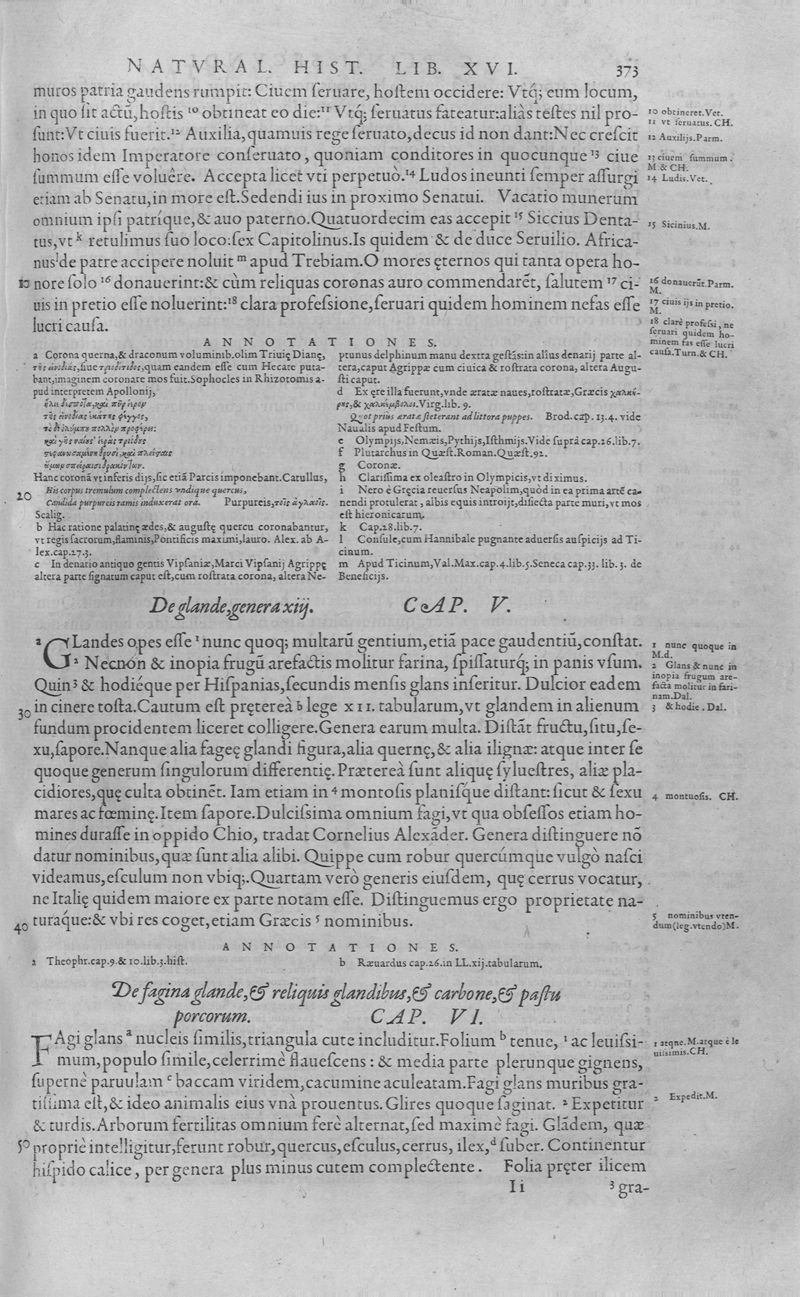 NATVRAL. HIST. LIB. XVI. 373
muros patria gaudens rumpit: Ciuem seruare, hostem occidere: Vtq; eum locum,
in quo sit actũ, hostis ¹⁰ obtineat eo die:¹¹ Vtq; seruatus fateatur: aliàs testes nil pro-
sunt: Vt ciuis fuerit.¹² Auxilia, quamuis rege seruato, decus id non dant: Nec crescit
honos idem Imperatore conseruato, quoniam conditores in quocunque ¹³ ciue
summum esse voluêre. Accepta licet vti perpetuò.¹⁴ Ludos ineunti semper assurgi
etiam ab Senatu, in more est. Sedendi ius in proximo Senatui. Vacatio munerum
omnium ipsi patríque, & auo paterno. Quatuordecim eas accepit ¹⁵ Siccius Denta-
tus, vt ᵏ retulimus suo loco: sex Capitolinus. Is quidem & de duce Seruilio. Africa-
nus ˡde patre accipere noluit ᵐ apud Trebiam. O mores ęternos qui tanta opera ho-
10 nore solo ¹⁶ donauerint: & cùm reliquas coronas auro commendarẽt, salutem ¹⁷ ci-
uis in pretio esse noluerint:¹⁸ clara professione, seruari quidem hominem nefas esse
lucri causa.
10 obtineret. Vet.
11 vt seruatus. CH.
12 Auxilijs. Parm.
13 ciuem summum.
M. & CH.
14 Ludis. Vet.
15 Sicinius. M.
16 donauerũt. Parm.
M.
17 ciuis ijs in pretio.
M.
18 clarè professi, ne
seruari quidem ho-
minem fas esse lucri
causa. Turn. & CH.
ANNOTATIONES.
a Corona querna, & draconum voluminib. olim Triuię Dianę,
τῆς ἐνοδίας, siue τριοδίτιδος, quam eandem esse cum Hecate puta-
bant, imaginem coronare mos fuit. Sophocles in Rhizotomis a-
pud interpretem Apollonij,
Hanc coronã vt inferis dijs, sic etiã Parcis imponebant. Catullus,
20 His corpus tremulum complectens vndique quercus,
Candida purpureis ramis induxerat ora. Purpureis, τοῖς ἀγλαοῖς.
Scalig.
b Hac ratione palatinę ædes, & augustę quercu coronabantur,
vt regis sacrorum, flaminis, Pontificis maximi, lauro. Alex. ab A-
lex. cap. 27. 3.
c In denario antiquo gentis Vipsaniæ, Marci Vipsanij Agrippę
altera parte signatum caput est, cum rostrata corona, altera Ne-
ptunus delphinum manu dextra gestãs: in alius denarij parte al-
tera, caput Agrippæ cum ciuica & rostrata corona, altera Augu-
sti caput.
d Ex ęre illa fuerunt, vnde æratæ naues, rostratæ, Græcis χαλκέμ-
& Virg. lib. 9.
Quot prius æratæ steterant ad littora puppes. Brod. cap. 13. 4. vide
Naualis apud Festum.
e Olympijs, Nemæis, Pythijs, Isthmijs. Vide suprà cap. 26. lib. 7.
f Plutarchus in Quæst. Roman. Quæst. 92.
g Coronæ.
h Clarissima ex oleastro in Olympicis, vt diximus.
i Nero è Gręcia reuersus Neapolim, quòd in ea prima artẽ ca-
nendi protulerat, albis equis introijt, disiecta parte muri, vt mos
est hieronicarum.
k Cap. 28. lib. 7.
l Consule, cum Hannibale pugnante aduersis auspicijs ad Ti-
cinum.
m Apud Ticinum, Val. Max. cap. 4. lib. 5. Seneca cap. 33. lib. 3. de
Beneficijs.
De glande, genera xiij. CAP. V.
ᵃ GLandes opes esse ¹ nunc quoq; multarũ gentium, etiã pace gaudentiũ, constat.
² Necnõn & inopia frugũ arefactis molitur farina, spissaturq; in panis vsum.
Quin ³ & hodiéque per Hispanias, secundis mensis glans inseritur. Dulcior eadem
30 in cinere tosta. Cautum est pręterea ᵇ lege XII. tabularum, vt glandem in alienum
fundum procidentem liceret colligere. Genera earum multa. Distãt fructu, situ, se-
xu, sapore. Nanque alia fageę glandi figura, alia quernę, & alia ilignæ: atque inter se
quoque generum singulorum differentię. Præterea sunt alique̜ syluestres, aliæ pla-
cidiores, quę culta obtinẽt. Iam etiam in ⁴ montosis planisque distant: sicut & sexu
mares ac fœminę. Item sapore. Dulcissima omnium fagi, vt qua obsessos etiam ho-
mines durasse in oppido Chio, tradat Cornelius Alexãder. Genera distinguere nõ
datur nominibus, quæ sunt alia alibi. Quippe cum robur quercúmque vulgò nasci
videamus, esculum non vbiq;. Quartam verò generis eiusdem, quę cerrus vocatur,
ne Italię quidem maiore ex parte notam esse. Distinguemus ergo proprietate na-
40 turáque: & vbi res coget, etiam Græcis ⁵ nominibus.
1 nunc quoque in
M. d.
2 Glans & nunc in
inopia frugum are-
facta molitur in fari-
nam. Dal.
3 & hodie. Dal.
4 montuosis. CH.
5 nominibus vten-
dum (leg. vtendo) M.
ANNOTATIONES.
a Theophr. cap. 9. & 10. lib. 3. hist.
b Ræuardus cap. 26. in LL. xij. tabularum.
De fagina glande, & reliquis glandibus, & carbone, & pastu
porcorum. CAP. VI.
FAgi glans ᵃ nucleis similis, triangula cute includitur. Folium ᵇ tenue, ¹ ac leuissi-
mum, populo simile, celerrimè flauescens: & media parte plerunque gignens,
supernè paruulam ᶜ baccam viridem, cacumine aculeatam. Fagi glans muribus gra-
tissima est, & ideo animalis eius vnà prouentus. Glires quoque saginat. ² Expetitur
& turdis. Arborum fertilitas omnium ferè alternat, sed maximè fagi. Glãdem, quæ
50 propriè intelligitur, ferunt robur, quercus, esculus, cerrus, ilex, ᵈ suber. Continentur
hispido calice, per genera plus minus cutem complectente. Folia pręter ilicem
1 atque. M. atque è le
uissimis. CH.
2 Expedit. M.
Ii ³ gra-